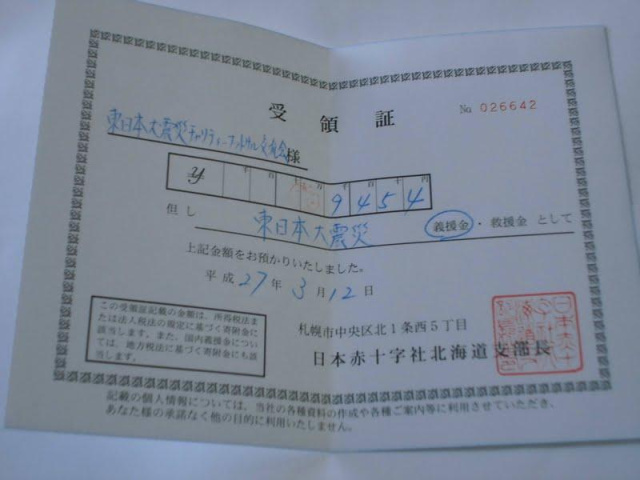 受領証
No 026642
東日本大震災チャリティーフットサル交流会様
¥ 9454
但し 東日本大震災 義援金・救援金 として
上記金額をお預かりいたしました。
平成 27 年 3 月 12 日
この受領証記載の金額は、所得税法ま
たは法人税法の規定に基づく寄附金に
該当します。また、国内義援金につい
ては、地方税法に基づく寄附金にも該
当します。
札幌市中央区北1条西5丁目
日本赤十字社北海道支部長
記載の個人情報については、当社の各種資料の作成や各種ご案内等に利用させていただき、
あなた様の承諾なく他の目的に利用いたしません。